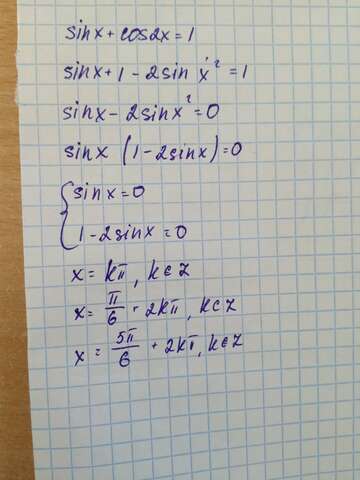 sinx + cos2x = 1
sinx + 1 - 2sin x² = 1
sinx - 2sinx² = 0
sinx (1 - 2sinx) = 0
{ sinx = 0
1 - 2sinx = 0
x = kπ, k∈Z
x = π/6 + 2kπ, k∈Z
x = 5π/6 + 2kπ, k∈Z